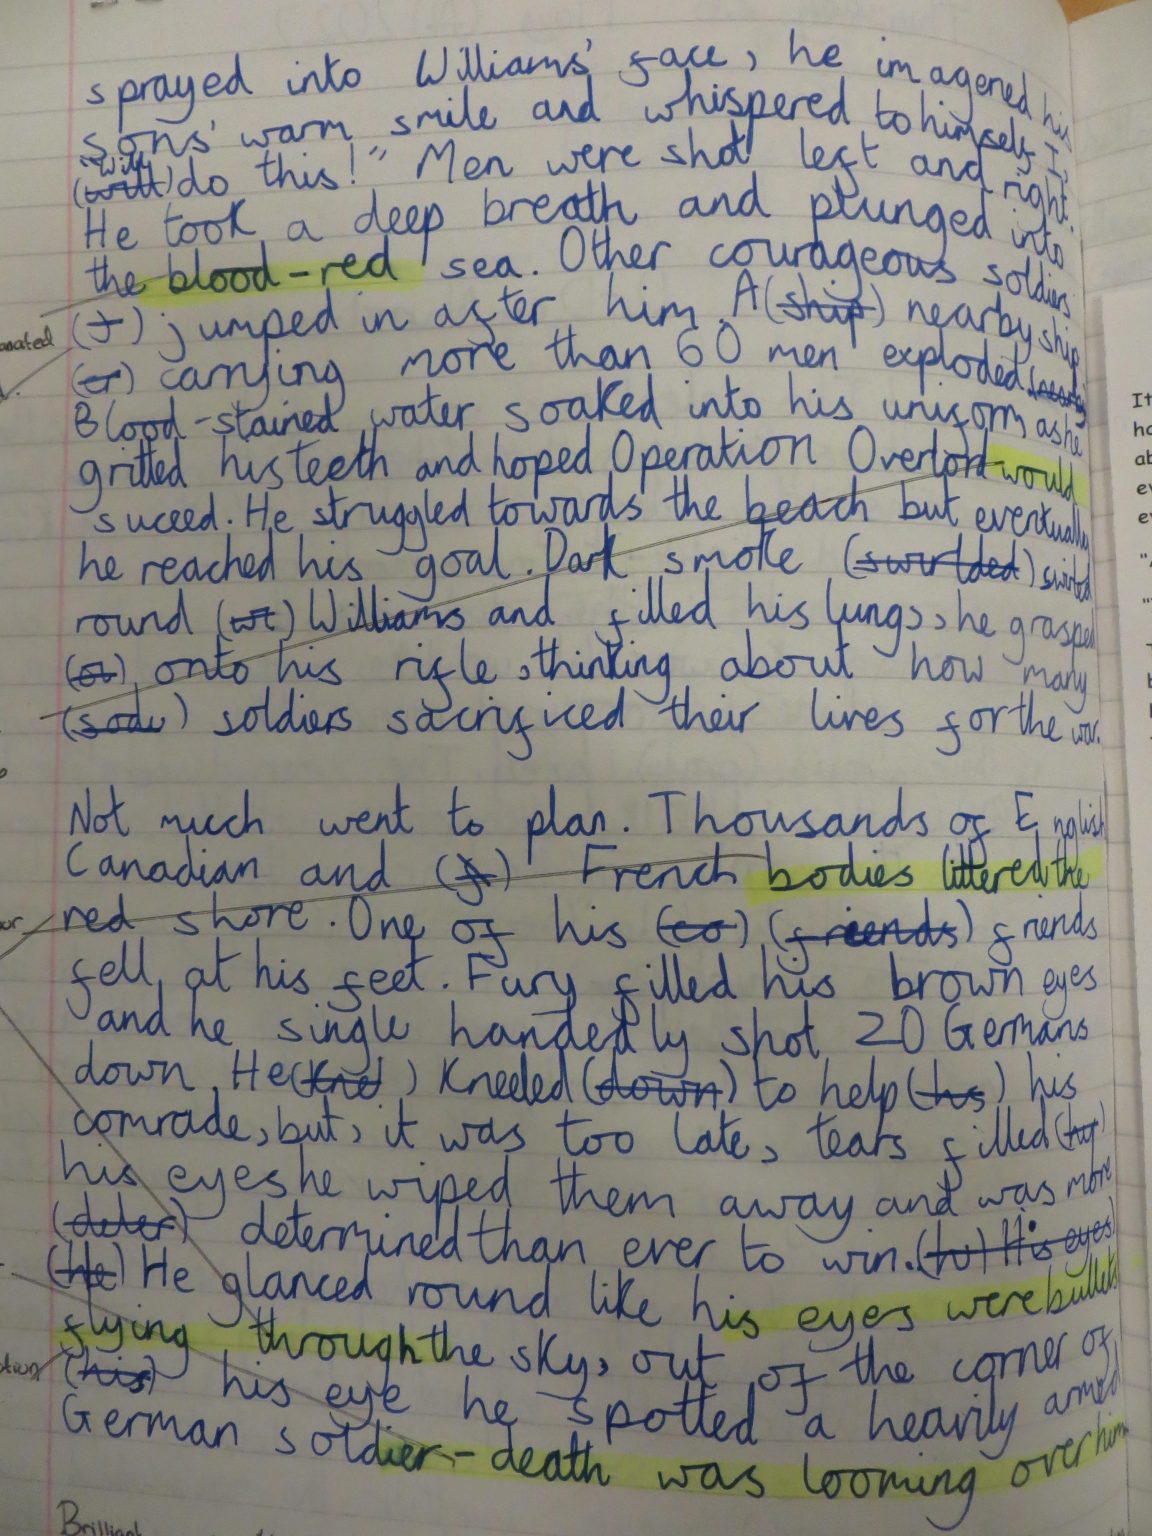 sprayed into Williams' face, he imagered his
sons' warm smile and whispered to himself, "I
will (will) do this!" Men were shot left and right.
He took a deep breath and plunged into
the blood-red sea. Other courageous soldiers
(j) jumped in after him. A (ship) nearby ship
(cr) carrying more than 60 men exploded (nearby)
Blood-stained water soaked into his uniform as he
gritted his teeth and hoped Operation Overlord would
suceed. He struggled towards the beach but eventually
he reached his goal. Dark smoke (swirlded) swirled
round (wi) Williams and filled his lungs, he grasped
(on) onto his rifle, thinking about how many
(sodi) soldiers sacrificed their lives for the war.
Not much went to plan. Thousands of English
Canadian and (f) French bodies littered the
red shore. One of his (co) (friends) friends
fell at his feet. Fury filled his brown eyes
and he single handedly shot 20 Germans
down. He (kned) kneeled (down) to help (his) his
comrade, but, it was too late, tears filled
his eyes he wiped them away and was more
(deter) determined than ever to win. His eyes
(He) He glanced round like his eyes were bullets
flying through the sky, out of the corner of
(his) his eye he spotted a heavily armed
German soldier - death was looming over him
Brilliant
It
ha
ab
ev
ev